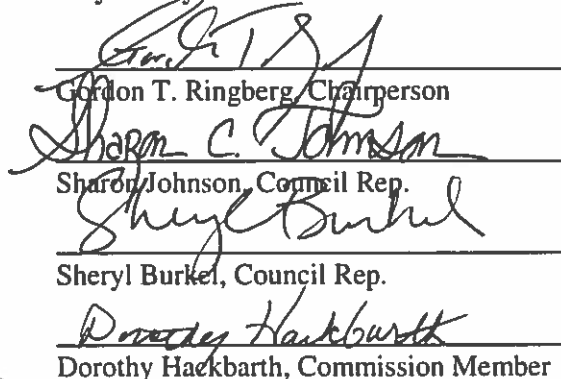 Gordon T. Ringberg, Chairperson
Sharon C. Johnson
Sharon Johnson, Council Rep.
Sheryl Burkel
Sheryl Burkel, Council Rep.
Dorothy Hackbarth
Dorothy Hackbarth, Commission Member